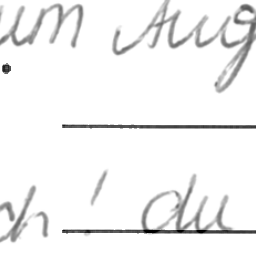 um Aug
ch! du